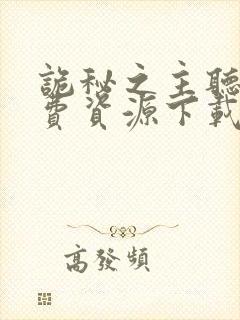 詭秘之主聽
費資源下載
高發頻